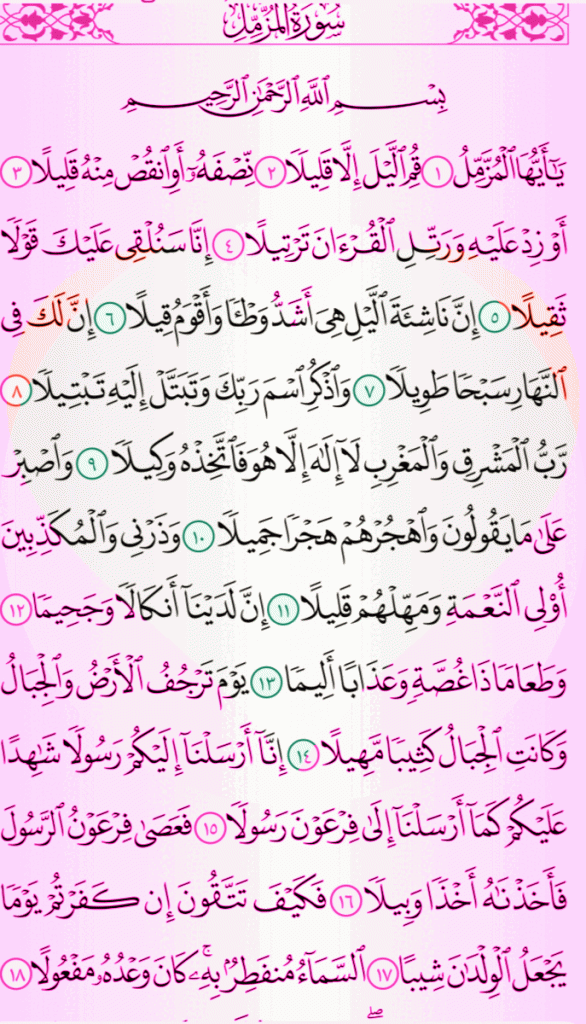 سُورَةُ المُزَّمِّلِ
بِسْمِ ٱللَّهِ ٱلرَّحْمَٰنِ ٱلرَّحِيمِ
يَٰٓأَيُّهَا ٱلْمُزَّمِّلُ ١ قُمِ ٱلَّيْلَ إِلَّا قَلِيلًا ٢ نِّصْفَهُۥٓ أَوِ ٱنقُصْ مِنْهُ قَلِيلًا ٣
أَوْ زِدْ عَلَيْهِ وَرَتِّلِ ٱلْقُرْءَانَ تَرْتِيلًا ٤ إِنَّا سَنُلْقِى عَلَيْكَ قَوْلًا
ثَقِيلًا ٥ إِنَّ نَاشِئَةَ ٱلَّيْلِ هِىَ أَشَدُّ وَطْـًٔا وَأَقْوَمُ قِيلًا ٦ إِنَّ لَكَ فِى
ٱلنَّهَارِ سَبْحًا طَوِيلًا ٧ وَٱذْكُرِ ٱسْمَ رَبِّكَ وَتَبَتَّلْ إِلَيْهِ تَبْتِيلًا ٨
رَّبُّ ٱلْمَشْرِقِ وَٱلْمَغْرِبِ لَآ إِلَٰهَ إِلَّا هُوَ فَٱتَّخِذْهُ وَكِيلًا ٩ وَٱصْبِرْ
عَلَىٰ مَا يَقُولُونَ وَٱهْجُرْهُمْ هَجْرًا جَمِيلًا ١٠ وَذَرْنِى وَٱلْمُكَذِّبِينَ
أُو۟لِى ٱلنَّعْمَةِ وَمَهِّلْهُمْ قَلِيلًا ١١ إِنَّ لَدَيْنَآ أَنكَالًا وَجَحِيمًا ١٢
وَطَعَامًا ذَا غُصَّةٍ وَعَذَابًا أَلِيمًا ١٣ يَوْمَ تَرْجُفُ ٱلْأَرْضُ وَٱلْجِبَالُ
وَكَانَتِ ٱلْجِبَالُ كَثِيبًا مَّهِيلًا ١٤ إِنَّآ أَرْسَلْنَآ إِلَيْكُمْ رَسُولًا شَٰهِدًا
عَلَيْكُمْ كَمَآ أَرْسَلْنَآ إِلَىٰ فِرْعَوْنَ رَسُولًا ١٥ فَعَصَىٰ فِرْعَوْنُ ٱلرَّسُولَ
فَأَخَذْنَٰهُ أَخْذًا وَبِيلًا ١٦ فَكَيْفَ تَتَّقُونَ إِن كَفَرْتُمْ يَوْمًا
يَجْعَلُ ٱلْوِلْدَٰنَ شِيبًا ١٧ ٱلسَّمَآءُ مُنفَطِرٌۢ بِهِۦۚ كَانَ وَعْدُهُۥ مَفْعُولًا ١٨